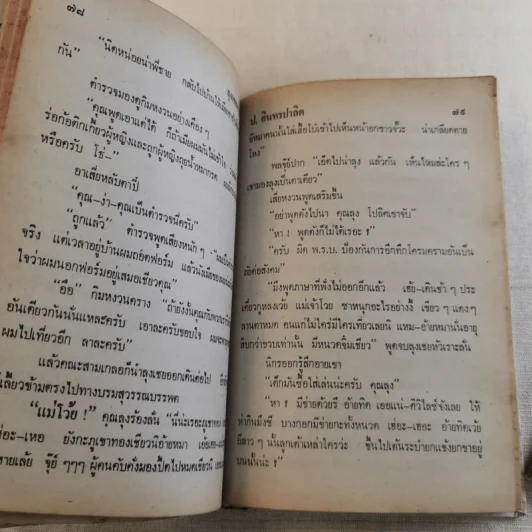 ๗๘
"นิดหน่อยน่าพี่ชาย กลับไปบ้านให้
กัน"
ตำรวจมองดูกิมหงวนอย่างเคือง ๆ
"คุณพูดเอาแต่ได้ ก็ถ้าเมียผมมัน
ร่อก้อติกเกี้ยวผู้หญิงและถูกผู้หญิงถ่มน้ำหมากรด
หรือครับ โธ่–"
อาเสี่ยหลับตาปี๋
"คุณ–ง่า–คุณเป็นตำรวจนี่ครับ"
"ถูกแล้ว" ตำรวจพูดเสียงหนัก ๆ
จริง แต่เวลาอยู่บ้านผมถอดฟอร์ม แล้วนังเมียของผม
ใจว่าผมนอกฟอร์มอยู่เสมอเชียวคุณ"
"อือ" กิมหงวนคราง "ถ้ายังงั้นคุณกับพวกเรา
อันเดียวกันนั่นแหละครับ เอาละครับขอบใจ
ผมไปเที่ยวอีก ลาละครับ"
แล้วคณะสามเกลอก็นำลุงเชยออกเดินต่อไป
เลี้ยวข้ามตรงไปทางบรมสุวรรณบรรพต
"แม่โว้ย !" คุณลุงร้องลั่น
ฮ่อะ–เหอ ยังกะภูเขาทองเชียวนิอ้ายหมา
ทายเลย จุ๊ย์ ๆๆๆ ผู้คนคับคั่งมองปื๋ดไปหมดเชียวนิ
ป. อินทรปาลิต
๗๙
อีหมาคนนั้นใส่เสื้อโบ๋เข้าไปเห็นหน้าอกขาวจั๊วะ น่าเกลียดตาย
โหง"
พลจุ๊ย์ปาก "เอ็ดไปน่าลุง แล้วกัน เห็นใหมล่ะใคร ๆ
เขามองลุงเป็นตาเดียว"
เสี่ยหงวนพูดเสริมขึ้น
"อย่าพูดดังไปน่า คุณลุง โปลิศเขาจับ"
"หา ! พูดดังก็ไม่ได้เรอะ !"
"ครับ ผิด พ.ร.บ. ป้องกันการอึกทึกโครมครามอันเป็น
ภัยต่อสังคม"
"มีงพูดภาษาที่ฟังไม่ออกอีกแล้ว เฮ้ย–เดินช้า ๆ ประ
เดี๋ยวกูหลงเว้ย แม่เจ้าโว้ย ชาหนุกอะไรอย่างงี้ เขียว ๆ แดง ๆ
ลานตาหมด คนแก่ไม่ใคร่มีใครเที่ยวเลยนี่ แหม–อ้ายหมานั่นอายุ
สิบกว่าขวบเท่านั้น มีหนวดจิ๋มเชียว" พูดจบลุงเชยหัวเราะลั่น
นิกรออกรู้สึกอายเขา
"เด็กมันซื้อใส่เล่นนะครับ คุณลุง"
"หา ! มีขายด้วยรึ อ้ายทิด เออแน่–ศิวิไลซ์จังเลย ให้
ห่ากินมึงซี บางกอกมีขายกะทั่งหนวด เฮ่อะ–เฮ่อะ อ้ายทิดเว้ย
อีสาว ๆ นั้นลูกเต้าเหล่าใครว่ะ ขึ้นไปเต้นระบำยกแข้งยกขาอยู่
บนนั้นน่ะ !"